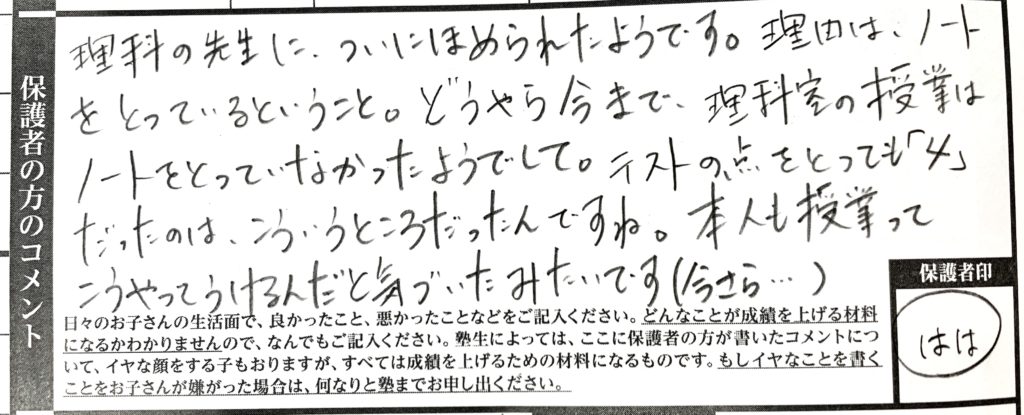 保護者の方のコメント
理科の先生に、ついにほめられたようです。理由は、ノート
をとっているということ。どうやら今まで、理科室の授業は
ノートをとっていなかったようでして。テストの点をとっても「4」
だったのは、こういうところだったんですね。本人も授業って
こうやってうけるんだと気づいたみたいです(今さら…)
日々のお子さんの生活面で、良かったこと、悪かったことなどをご記入ください。どんなことが成績を上げる材料
になるかわかりませんので、なんでもご記入ください。塾生によっては、ここに保護者の方が書いたコメントについ
て、イヤな顔をする子もおりますが、すべては成績を上げるための材料になるものです。もしイヤなことを書く
ことをお子さんが嫌がった場合は、何なりと塾までお申し出ください。
保護者印
はは